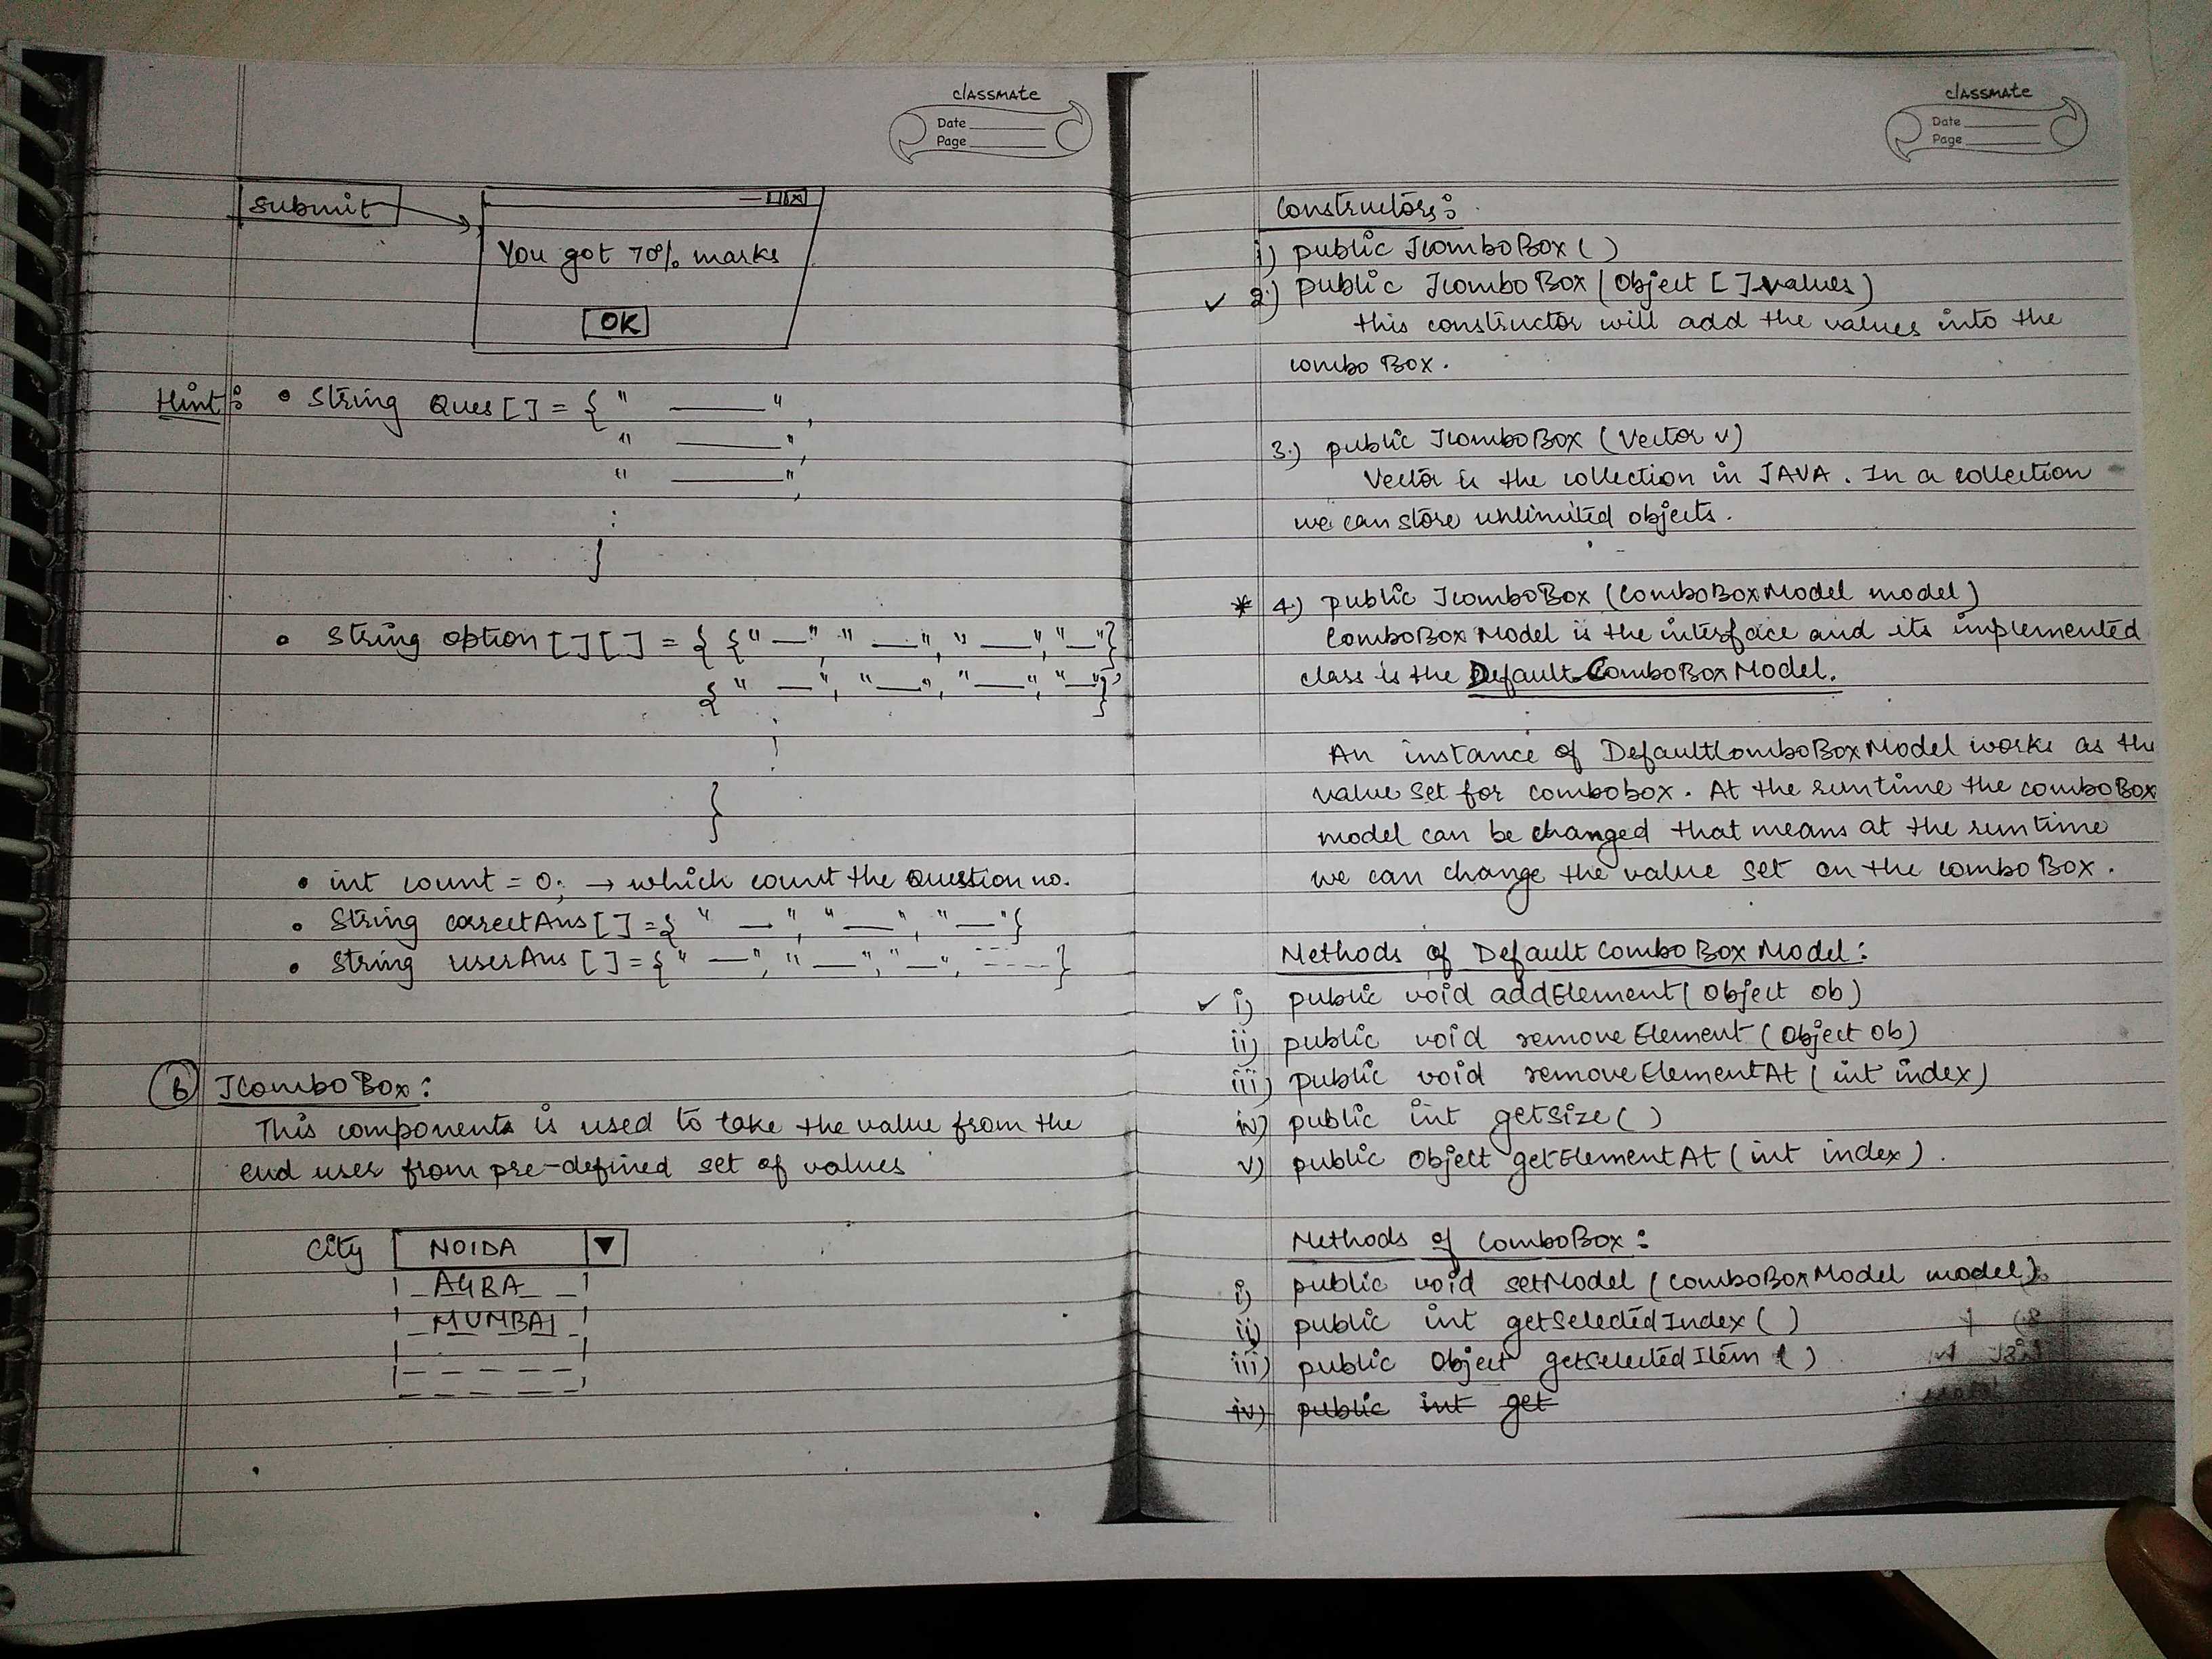 classmate
Date
Page
Submit
You got 70% marks
OK
Hint: • String Ques[] = { " ——— ",
" ——— ",
" ——— ",
:
}
• String option[][] = { {" — ", " — ", " — ", " — "}
{" — ", " — ", " — ", " — "},
:
}
• int count = 0; → which count the Question no.
• String correctAns[] = { " — ", " — ", " — "}
• String userAns[] = {" — ", " — ", " — ", - - - - }
6 JComboBox:
This components is used to take the value from the
end user from pre-defined set of values
City NOIDA ▼
AGRA
MUMBAI
classmate
Date
Page
Constructors:
i) public JComboBox()
✓ 2.) public JComboBox(Object [] values)
this constructor will add the values into the
combo Box.
3.) public JComboBox (Vector v)
Vector is the collection in JAVA. In a collection
we can store unlimited objects.
* 4.) public JComboBox (ComboBoxModel model)
ComboBoxModel is the interface and its implemented
class is the DefaultComboBoxModel.
An instance of DefaultComboBoxModel works as the
value set for combobox. At the runtime the comboBox
model can be changed that means at the runtime
we can change the value set on the combo Box.
Methods of DefaultComboBoxModel:
✓ i) public void addElement( Object ob)
ii) public void removeElement (Object ob)
iii) public void removeElementAt ( int index)
iv) public int getSize ( )
v) public Object getElementAt ( int index ) .
Methods of ComboBox:
i) public void setModel (ComboBoxModel model)
ii) public int getSelectedIndex ( )
iii) public Object getSelectedItem ( )
iv) public int get